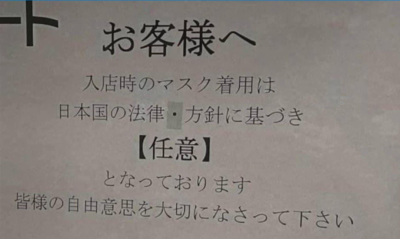 お客様へ
入店時のマスク着用は
日本国の法律・方針に基づき
【任意】
となっております
皆様の自由意思を大切になさって下さい